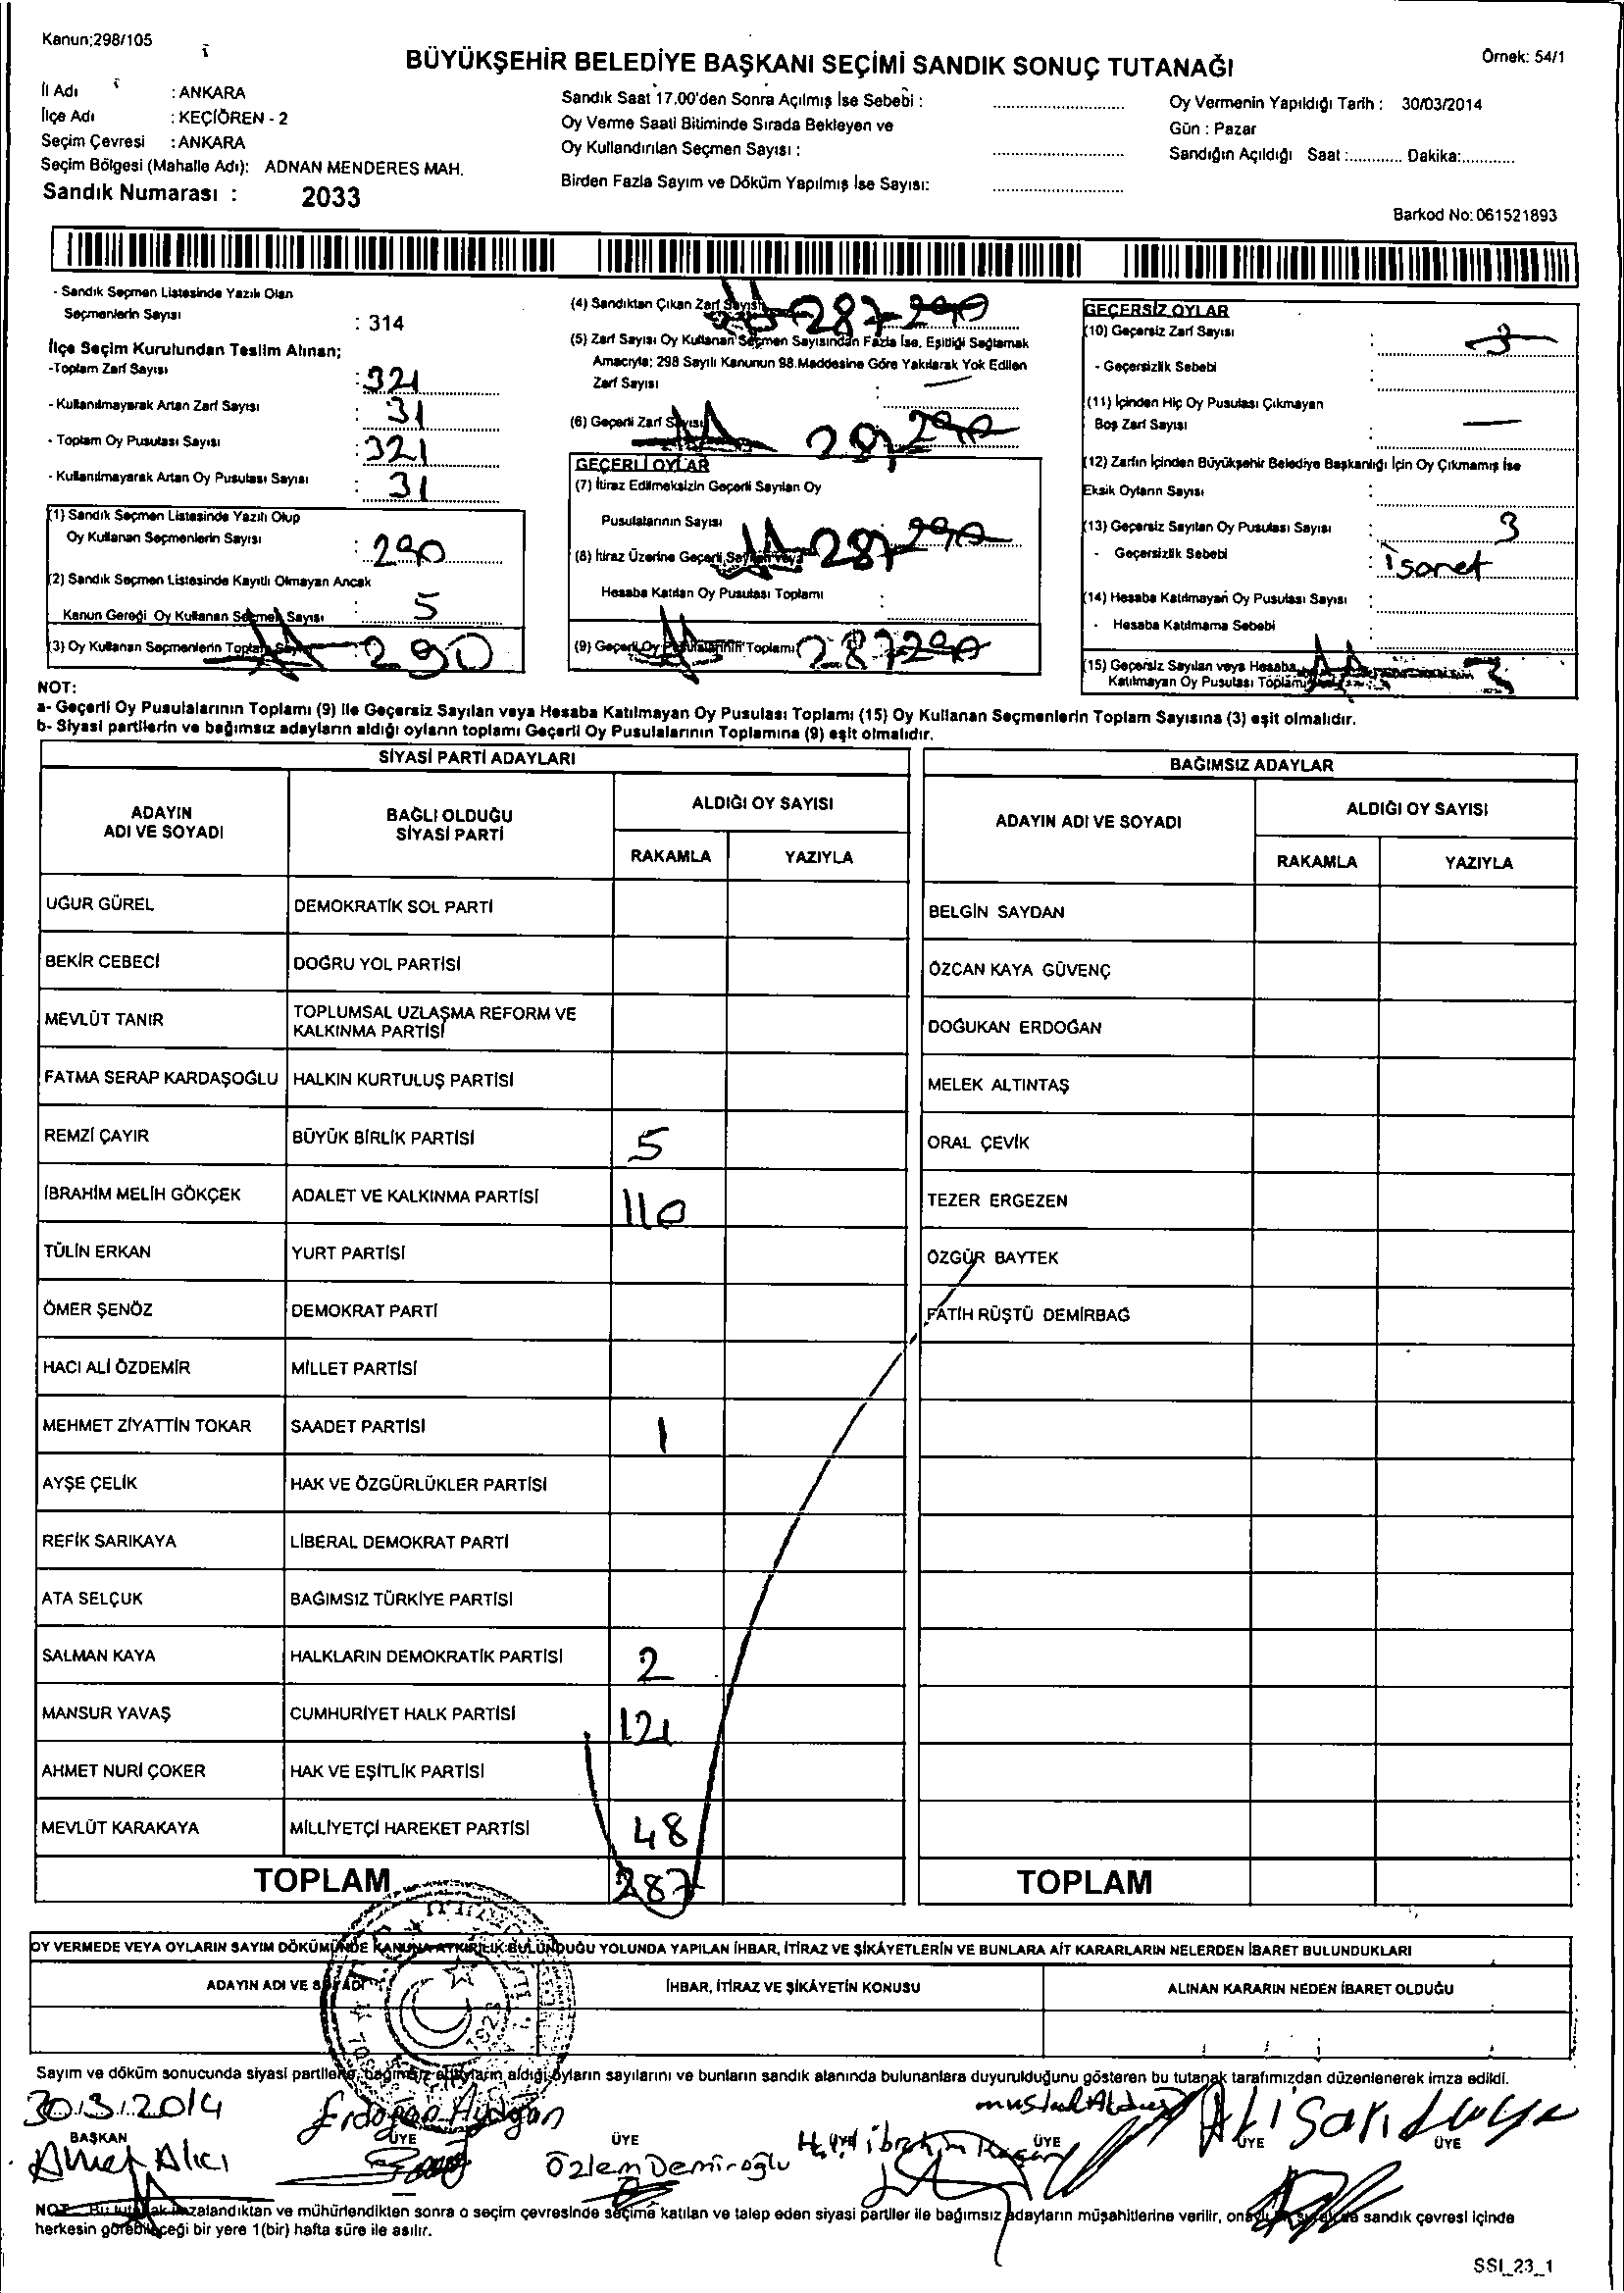 Kanun;298/105
BÜYÜKŞEHİR BELEDİYE BAŞKANI SEÇİMİ SANDIK SONUÇ TUTANAĞI
Örnek: 54/1
İl Adı : ANKARA
İlçe Adı : KEÇİÖREN - 2
Seçim Çevresi : ANKARA
Seçim Bölgesi (Mahalle Adı): ADNAN MENDERES MAH.
Sandık Numarası : 2033
Sandık Saat 17.00'den Sonra Açılmış İse Sebebi :
Oy Verme Saati Bitiminde Sırada Bekleyen ve
Oy Kullandırılan Seçmen Sayısı :
Birden Fazla Sayım ve Döküm Yapılmış İse Sayısı:
Oy Vermenin Yapıldığı Tarih : 30/03/2014
Gün : Pazar
Sandığın Açıldığı Saat :............ Dakika:............
Barkod No: 061521893
- Sandık Seçmen Listesinde Yazılı Olan
Seçmenlerin Sayısı : 314
İlçe Seçim Kurulundan Teslim Alınan;
-Toplam Zarf Sayısı : 321
- Kullanılmayarak Artan Zarf Sayısı : 31
- Toplam Oy Pusulası Sayısı : 321
- Kullanılmayarak Artan Oy Pusulası Sayısı : 31
(1) Sandık Seçmen Listesinde Yazılı Olup
Oy Kullanan Seçmenlerin Sayısı : 290
(2) Sandık Seçmen Listesinde Kayıtlı Olmayan Ancak
Kanun Gereği Oy Kullanan Seçmen Sayısı : 5
(3) Oy Kullanan Seçmenlerin Toplam Sayısı : 290
(4) Sandıktan Çıkan Zarf Sayısı 287 290
(5) Zarf Sayısı Oy Kullanan Seçmen Sayısından Fazla İse, Eşitliği Sağlamak
Amacıyla; 298 Sayılı Kanunun 98.Maddesine Göre Yakılarak Yok Edilen
Zarf Sayısı : —
(6) Geçerli Zarf Sayısı 287 290
GEÇERLİ OYLAR
(7) İtiraz Edilmeksizin Geçerli Sayılan Oy
Pusulalarının Sayısı 287 290
(8) İtiraz Üzerine Geçerli Sayılan veya
Hesaba Katılan Oy Pusulası Toplamı :
(9) Geçerli Oy Pusulalarının Toplamı 287 290
GEÇERSİZ OYLAR
(10) Geçersiz Zarf Sayısı : 3
- Geçersizlik Sebebi :
(11) İçinden Hiç Oy Pusulası Çıkmayan
Boş Zarf Sayısı : —
(12) Zarfın İçinden Büyükşehir Belediye Başkanlığı İçin Oy Çıkmamış İse
Eksik Oyların Sayısı :
(13) Geçersiz Sayılan Oy Pusulası Sayısı : 3
- Geçersizlik Sebebi : İşaret
(14) Hesaba Katılmayan Oy Pusulası Sayısı :
- Hesaba Katılmama Sebebi :
(15) Geçersiz Sayılan veya Hesaba
Katılmayan Oy Pusulası Toplamı 3
NOT:
a- Geçerli Oy Pusulalarının Toplamı (9) ile Geçersiz Sayılan veya Hesaba Katılmayan Oy Pusulası Toplamı (15) Oy Kullanan Seçmenlerin Toplam Sayısına (3) eşit olmalıdır.
b- Siyasi partilerin ve bağımsız adayların aldığı oyların toplamı Geçerli Oy Pusulalarının Toplamına (9) eşit olmalıdır.
SİYASİ PARTİ ADAYLARI
ADAYIN ADI VE SOYADI
BAĞLI OLDUĞU SİYASİ PARTİ
ALDIĞI OY SAYISI
RAKAMLA YAZIYLA
UĞUR GÜREL DEMOKRATİK SOL PARTİ
BEKİR CEBECİ DOĞRU YOL PARTİSİ
MEVLÜT TANIR TOPLUMSAL UZLAŞMA REFORM VE KALKINMA PARTİSİ
FATMA SERAP KARDAŞOĞLU HALKIN KURTULUŞ PARTİSİ
REMZİ ÇAYIR BÜYÜK BİRLİK PARTİSİ 5
İBRAHİM MELİH GÖKÇEK ADALET VE KALKINMA PARTİSİ 110
TÜLİN ERKAN YURT PARTİSİ
ÖMER ŞENÖZ DEMOKRAT PARTİ
HACI ALİ ÖZDEMİR MİLLET PARTİSİ
MEHMET ZİYATTİN TOKAR SAADET PARTİSİ 1
AYŞE ÇELİK HAK VE ÖZGÜRLÜKLER PARTİSİ
REFİK SARIKAYA LİBERAL DEMOKRAT PARTİ
ATA SELÇUK BAĞIMSIZ TÜRKİYE PARTİSİ
SALMAN KAYA HALKLARIN DEMOKRATİK PARTİSİ 2
MANSUR YAVAŞ CUMHURİYET HALK PARTİSİ 121
AHMET NURİ ÇOKER HAK VE EŞİTLİK PARTİSİ
MEVLÜT KARAKAYA MİLLİYETÇİ HAREKET PARTİSİ 48
TOPLAM 287
BAĞIMSIZ ADAYLAR
ADAYIN ADI VE SOYADI
ALDIĞI OY SAYISI
RAKAMLA YAZIYLA
BELGİN SAYDAN
ÖZCAN KAYA GÜVENÇ
DOĞUKAN ERDOĞAN
MELEK ALTINTAŞ
ORAL ÇEVİK
TEZER ERGEZEN
ÖZGÜR BAYTEK
FATİH RÜŞTÜ DEMİRBAĞ
TOPLAM
OY VERMEDE VEYA OYLARIN SAYIM DÖKÜMÜNDE KANUNA AYKIRILIK BULUNDUĞU YOLUNDA YAPILAN İHBAR, İTİRAZ VE ŞİKÂYETLERİN VE BUNLARA AİT KARARLARIN NELERDEN İBARET BULUNDUKLARI
ADAYIN ADI VE SOYADI
İHBAR, İTİRAZ VE ŞİKÂYETİN KONUSU
ALINAN KARARIN NEDEN İBARET OLDUĞU
1923
Sayım ve döküm sonucunda siyasi partilerle, bağımsız adayların aldığı oyların sayılarını ve bunların sandık alanında bulunanlara duyurulduğunu gösteren bu tutanak tarafımızdan düzenlenerek imza edildi.
30.3.2014
BAŞKAN ÜYE ÜYE ÜYE ÜYE ÜYE ÜYE
Ahmet Alıcı
Erdoğan Aydoğan
Özlem Demiroğlu
Ali Sarıkaya
NOT: Bu tutanak imzalandıktan ve mühürlendikten sonra o seçim çevresinde seçime katılan ve talep eden siyasi partiler ile bağımsız adayların müşahitlerine verilir, sandık çevresi içinde
herkesin görebileceği bir yere 1(bir) hafta süre ile asılır.
SSI_23_1